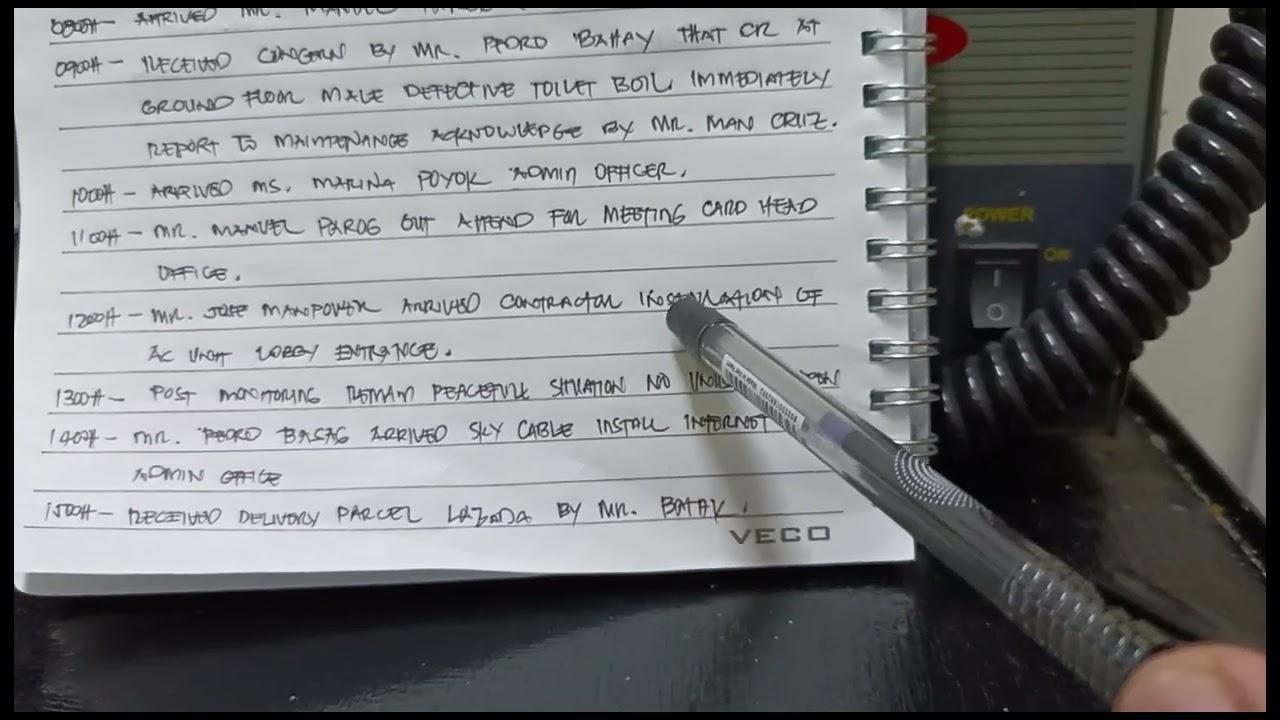 0800H - ARRIVED MR. MANUEL
0900H - RECEIVED CONCERN BY MR. PEDRO BAHAY THAT CR AT
GROUND FLOOR MALE DEFECTIVE TOILET BOIL IMMEDIATELY
REPORT TO MAINTENANCE ACKNOWLEDGE BY MR. MAN CRUZ.
1000H - ARRIVED MS. MARINA POYOK ADMIN OFFICER.
1100H - MR. MANUEL PAROG OUT ATTEND FOR MEETING CARD HEAD
OFFICE.
1200H - MR. JOSE MANPOWER ARRIVED CONTRACTOR OF
AC UNIT LOBBY ENTRANCE.
1300H - POST MONITORING REMAIN PEACEFULL SITUATION NO
1400H - MR. PEDRO BASAG ARRIVED SKY CABLE INSTALL INTERNET
ADMIN OFFICE
1500H - RECEIVED DELIVERY PARCEL LAZADA BY MR. BATAK.
VECO
POWER
ON